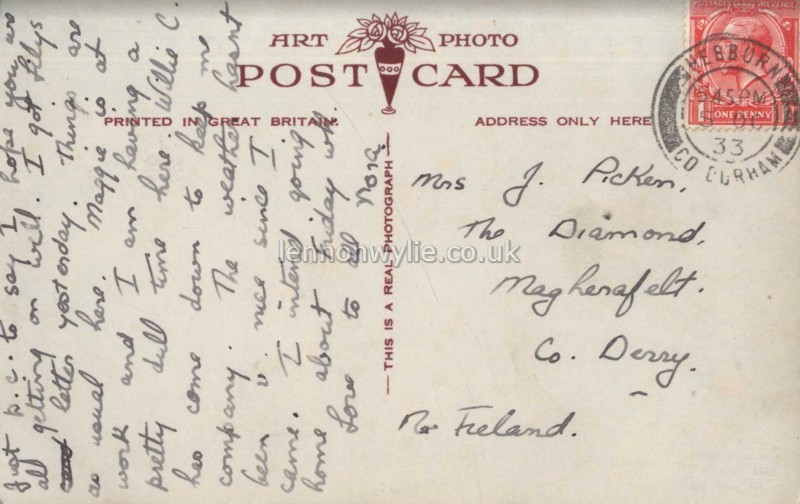 ART PHOTO
POST CARD
PRINTED IN GREAT BRITAIN.
ADDRESS ONLY HERE
THIS IS A REAL PHOTOGRAPH
Just p.c. to say I hope you are
all getting on well. I got Lilys
letter yesterday. Things are
as usual here. Maggie is at
work and I am having a
pretty dull time here. Willie C.
has come down to keep me
company. The weather hasnt
been nice since I
came. I intend going
home about Friday wk.
Love to all
Nora.
Mrs J. Picken,
The Diamond,
Magherafelt.
Co. Derry.
Ireland.
lennonwylie.co.uk
POSTAGE REVENUE
ONE PENNY
HEBBURN
545PM
33
CO DURHAM